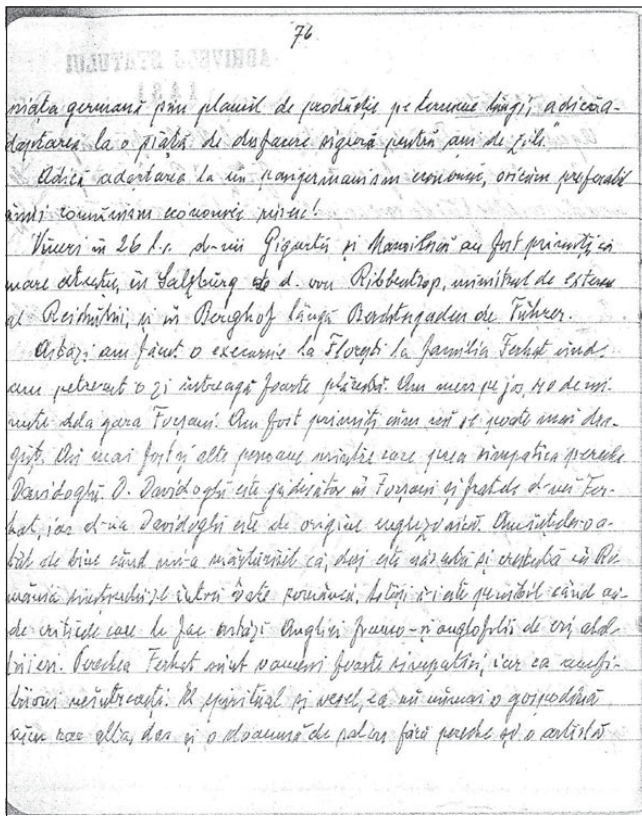 76
ARHIVELE STATULUI
IAȘI
piața germană prin planul de producție pe termene lungi, adică a-
daptarea la o piață de desfacere sigură pentru ani de zile."
Adică adaptarea la un pangermanism economic, oricum preferabil
unui comunism economic rusesc!
Vineri în 26 l.c. d-nii Gigurtu și Manoilescu au fost primiți cu
mare atenție, în Salzburg de d. von Ribbentrop, ministrul de externe
al Reichului, și în Berghof lângă Berchtesgaden de Führer.
Astăzi am făcut o excursie la Florești la familia Ferhat unde
am petrecut o zi întreagă foarte plăcută. Am mers pe jos, 40 de mi-
nute dela gara Focșani. Am fost primiți cum nu se poate mai dră-
guț. Au mai fost și alte persoane printre care prea simpatica pereche
Davidoglu. D. Davidoglu este judecător în Focșani și frate d-nei Fer-
hat, iar d-na Davidoglu este de origine englezoaică. Am înțeles-o a-
tât de bine când mi-a mărturisit că, deși este născută și crescută în Ro-
mânia simțindu-se întru toate româncă, totuși îi este penibil când au-
de criticele care le fac astăzi Angliei franco- și anglofilii de eri, alal-
tăieri. Perechea Ferhat sunt oameni foarte simpatici, iar ca amfi-
trioni neîntrecuți. El spiritual și vesel, ea nu numai o gospodină
cum nu alta, dar și o doamnă de salon fără pereche și o artistă